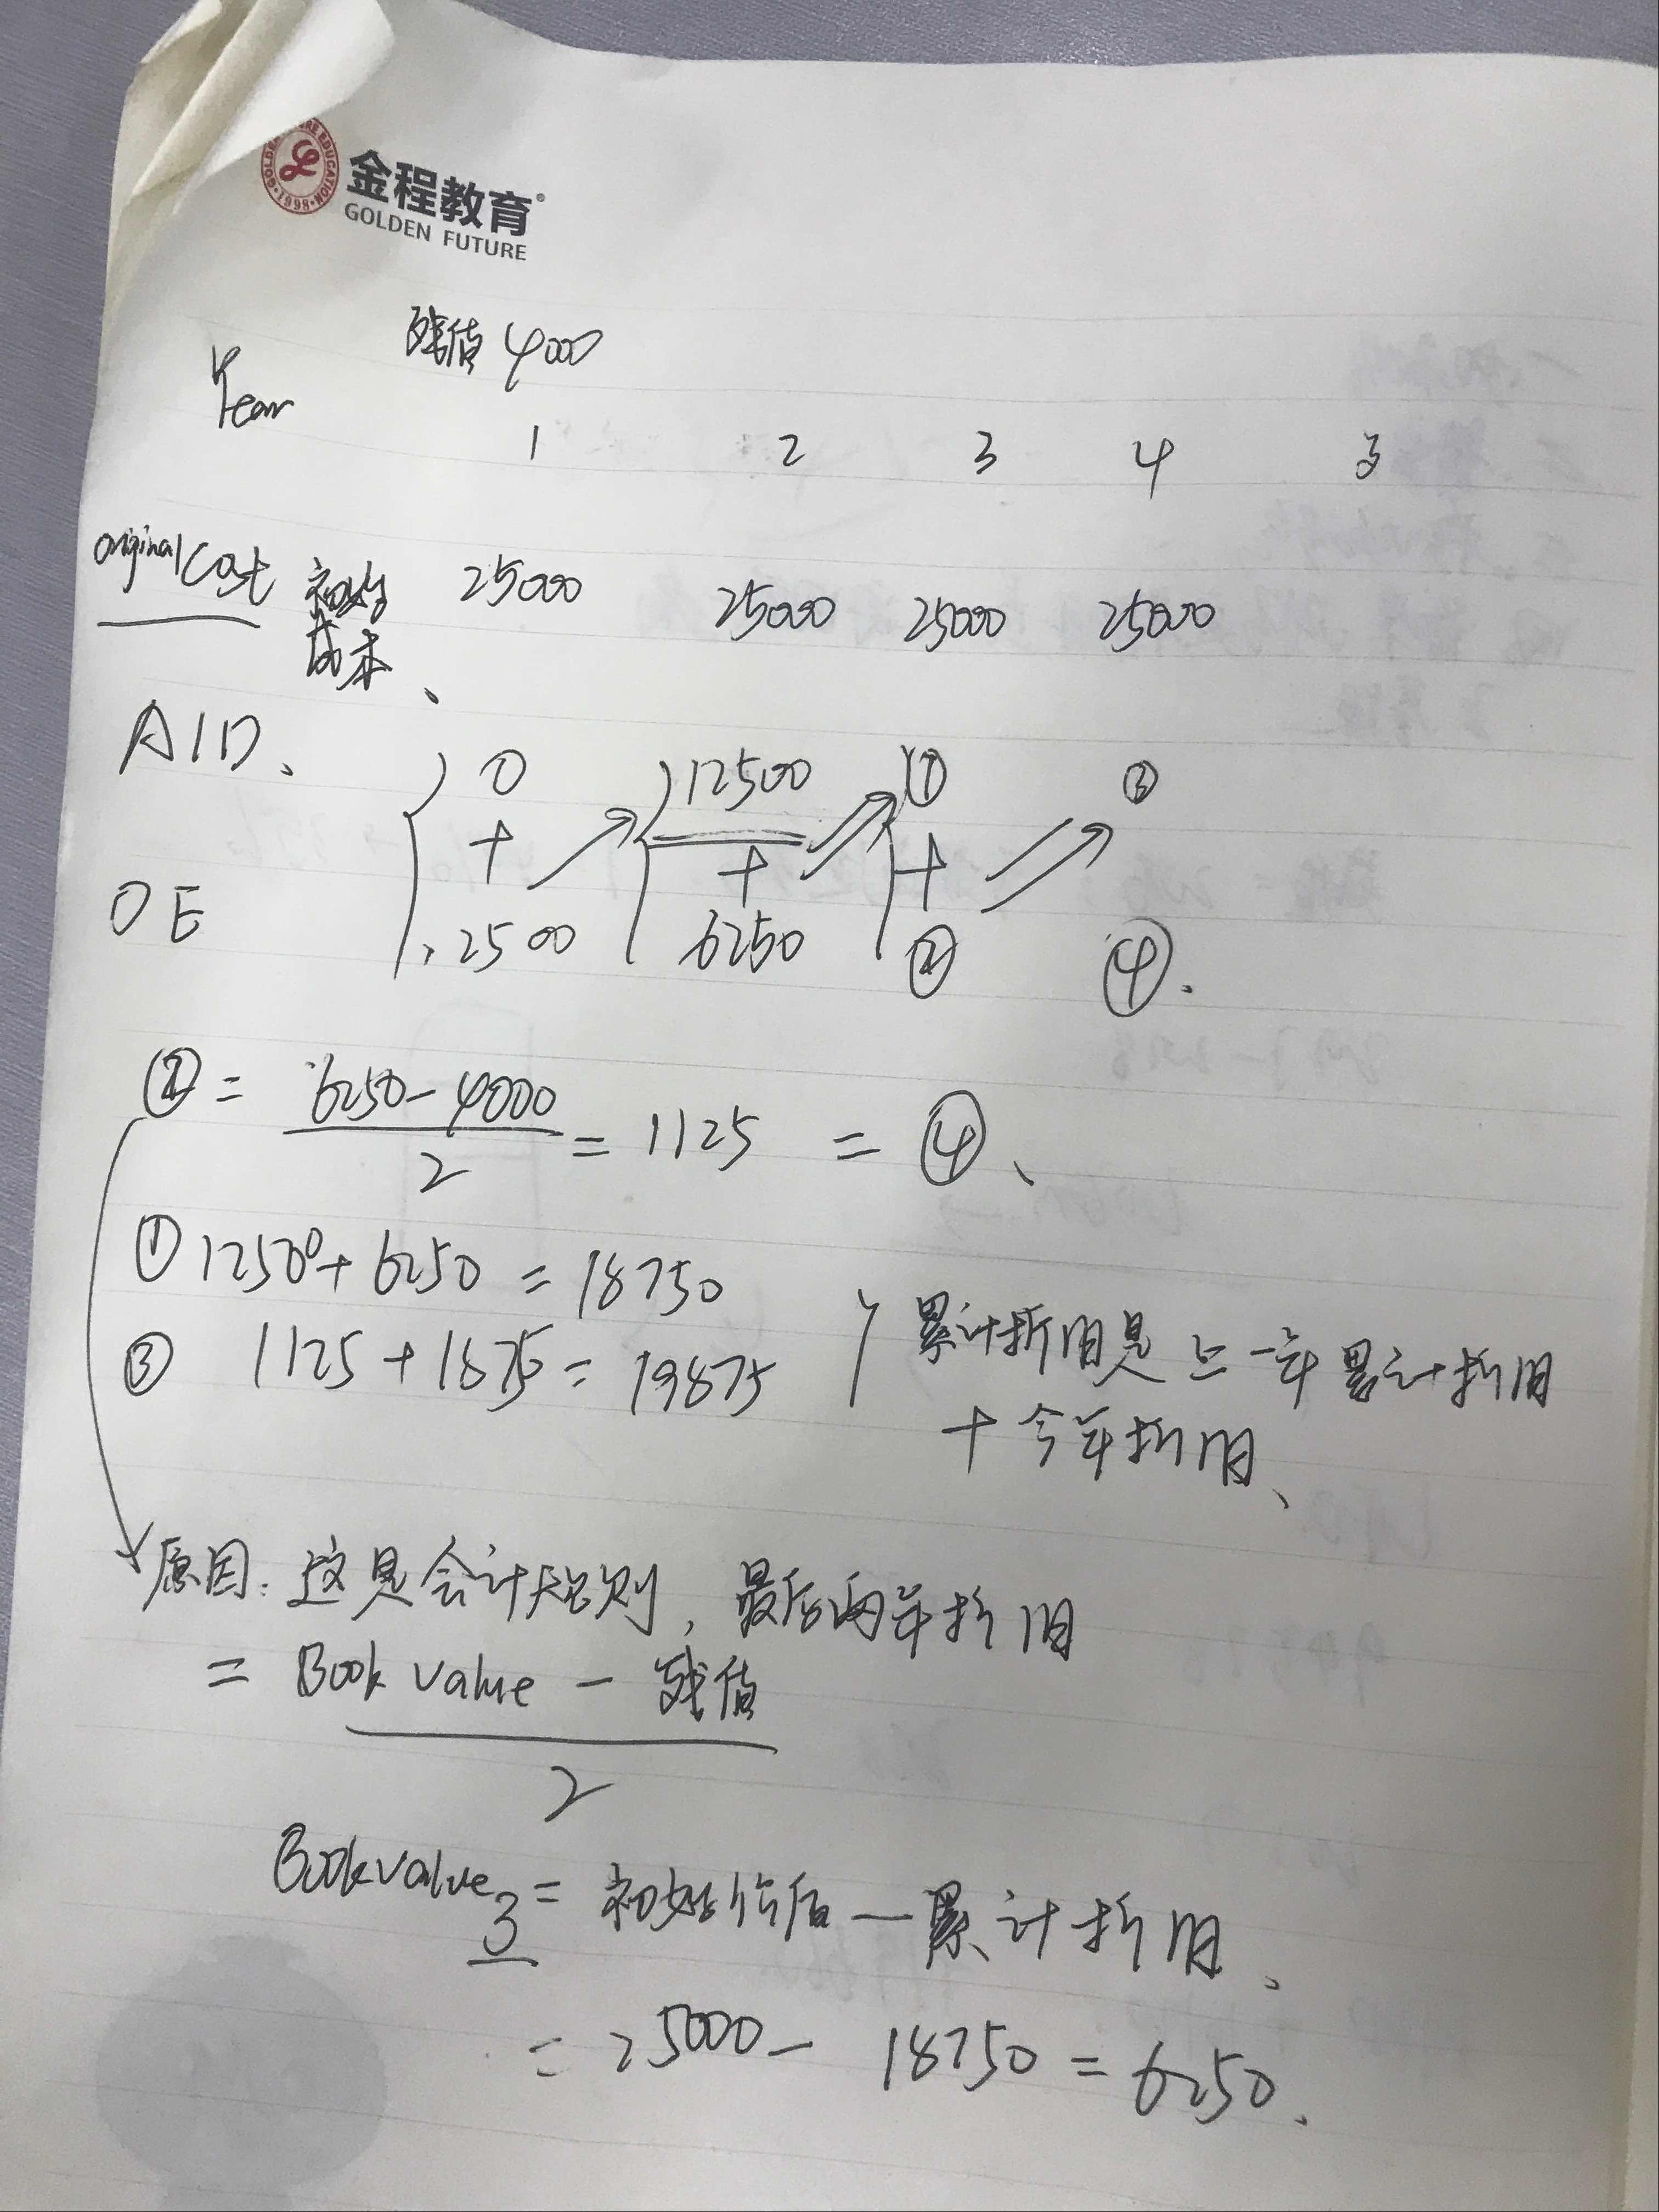 GOLDEN FUTURE EDUCATION
·1998·
金程教育
GOLDEN FUTURE
残值 4000
Year
1 2 3 4 5
original cost 初始成本、 25000 25000 25000 25000
A/D、 0 12500 ① ③
+ + +
OE 12500 6250 ② ④.
② = (6250-4000)/2 = 1125 = ④、
① 12500+6250 = 18750
③ 1125+1875 = 19875
} 累计折旧是上一年累计折旧
+ 今年折旧、
原因: 这是会计规则, 最后两年折旧
= (Book value - 残值)/2
Book value3 = 初始价值 - 累计折旧、
= 25000 - 18750 = 6250.